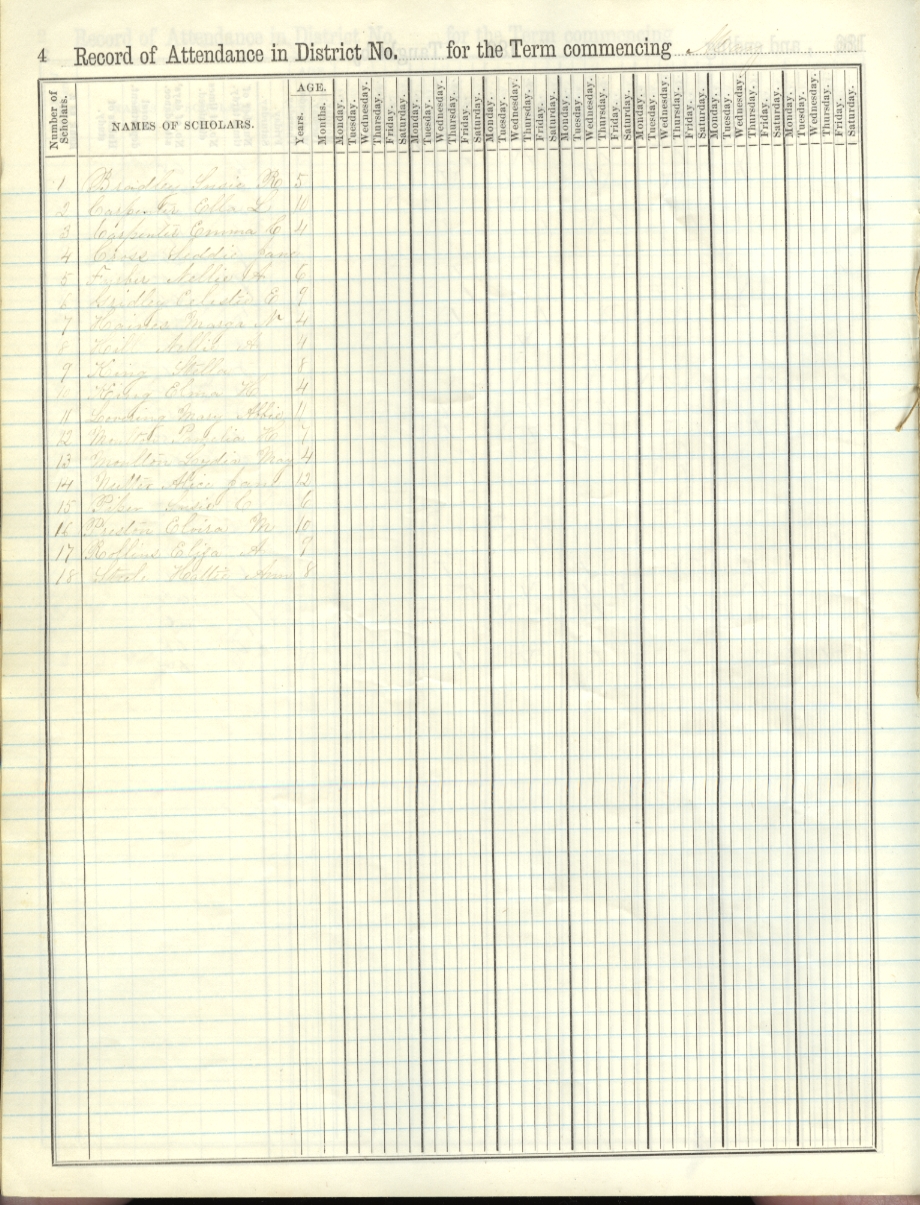 4 Record of Attendance in District No. for the Term commencing
Number of Scholars. NAMES OF SCHOLARS. AGE. Years. Months. Monday. Tuesday. Wednesday. Thursday. Friday. Saturday. Monday. Tuesday. Wednesday. Thursday. Friday. Saturday. Monday. Tuesday. Wednesday. Thursday. Friday. Saturday. Monday. Tuesday. Wednesday. Thursday. Friday. Saturday. Monday. Tuesday. Wednesday. Thursday. Friday. Saturday. Monday. Tuesday. Wednesday. Thursday. Friday. Saturday. Monday. Tuesday. Wednesday. Thursday. Friday. Saturday.
1 Bradley Susie R 5
2 Carpenter Ella L 10
3 Carpenter Emma C 4
4 Cross Jane
5 Nellie A 6
6 Gridley Celestia E 9
7 Haines N 4
8 Hill Nellie A 4
9 King Stella 8
10 King Elma H 4
11 Mary Abbie 11
12 Pamelia H 7
13 Moulton Lydia May 4
14 Nutter Alice Jane 12
15 Susie C 6
16 Preston M 10
17 Rollins Eliza A 9
18 Hattie Ann 8